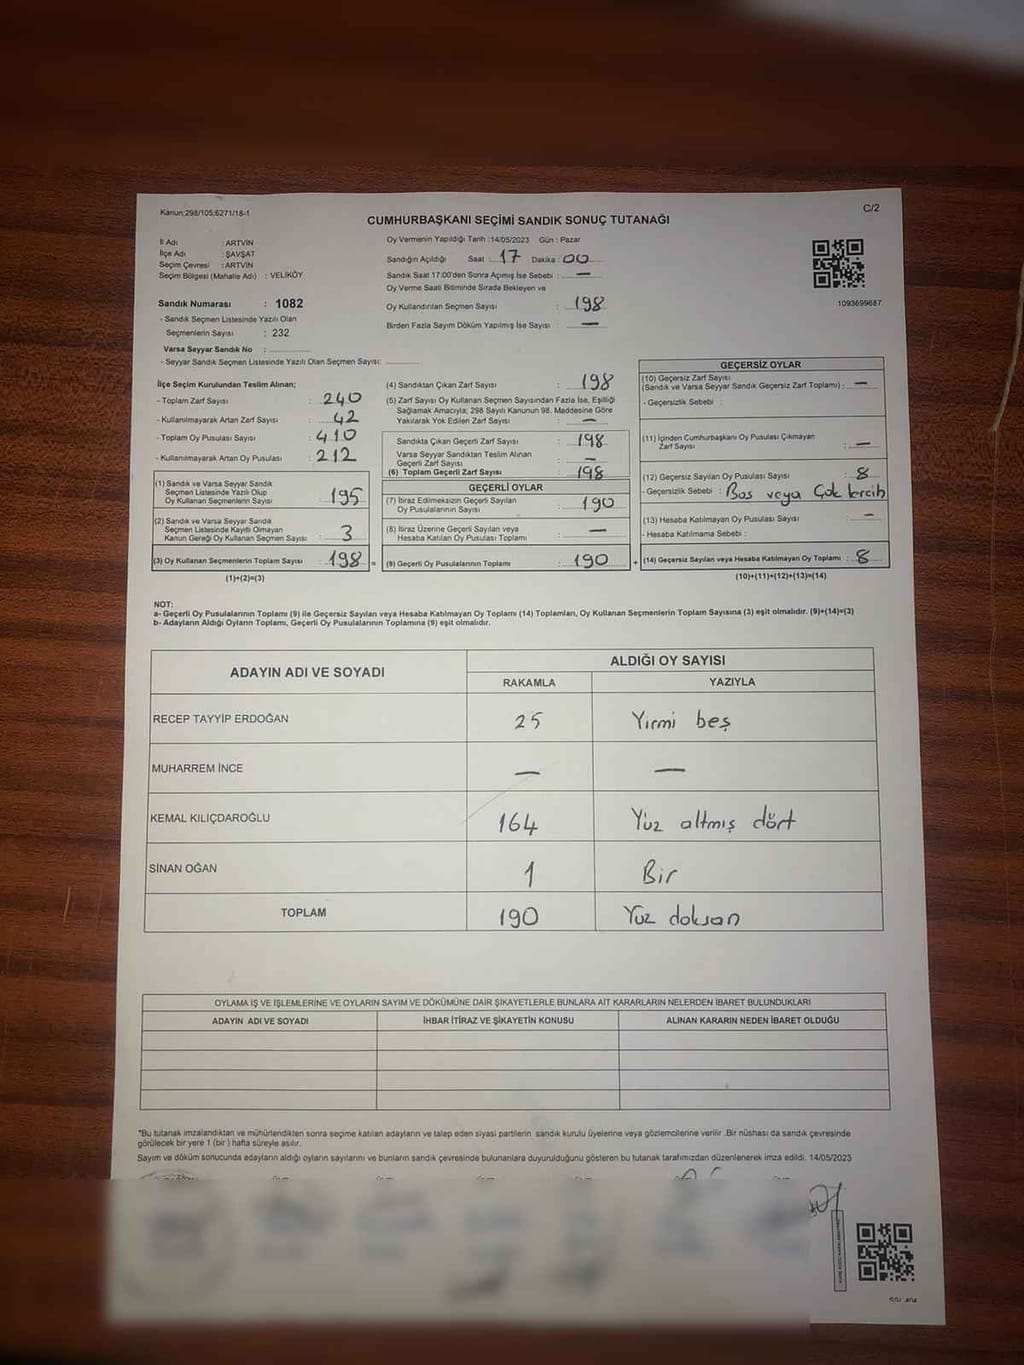 Kanun;298/105;6271/18-1
C/2
CUMHURBAŞKANI SEÇİMİ SANDIK SONUÇ TUTANAĞI
İl Adı : ARTVİN
İlçe Adı : ŞAVŞAT
Seçim Çevresi : ARTVİN
Seçim Bölgesi (Mahalle Adı) : VELİKÖY
Sandık Numarası : 1082
- Sandık Seçmen Listesinde Yazılı Olan
Seçmenlerin Sayısı : 232
Varsa Seyyar Sandık No :
- Seyyar Sandık Seçmen Listesinde Yazılı Olan Seçmen Sayısı:
Oy Vermenin Yapıldığı Tarih :14/05/2023 Gün : Pazar
Sandığın Açıldığı Saat : 17 Dakika : 00
Sandık Saat 17:00'den Sonra Açımış İse Sebebi : —
Oy Verme Saati Bitiminde Sırada Bekleyen ve
Oy Kullandırılan Seçmen Sayısı : 198
Birden Fazla Sayım Döküm Yapılmış İse Sayısı : —
1093699687
İlçe Seçim Kurulundan Teslim Alınan;
- Toplam Zarf Sayısı : 240
- Kullanılmayarak Artan Zarf Sayısı : 42
- Toplam Oy Pusulası Sayısı : 410
- Kullanılmayarak Artan Oy Pusulası : 212
(1) Sandık ve Varsa Seyyar Sandık
Seçmen Listesinde Yazılı Olup
Oy Kullanan Seçmenlerin Sayısı : 195
(2) Sandık ve Varsa Seyyar Sandık
Seçmen Listesinde Kayıtlı Olmayan
Kanun Gereği Oy Kullanan Seçmen Sayısı : 3
(3) Oy Kullanan Seçmenlerin Toplam Sayısı : 198 =
(1)+(2)=(3)
(4) Sandıktan Çıkan Zarf Sayısı : 198
(5) Zarf Sayısı Oy Kullanan Seçmen Sayısından Fazla İse, Eşitliği
Sağlamak Amacıyla; 298 Sayılı Kanunun 98. Maddesine Göre
Yakılarak Yok Edilen Zarf Sayısı : —
Sandıkta Çıkan Geçerli Zarf Sayısı : 198
Varsa Seyyar Sandıktan Teslim Alınan
Geçerli Zarf Sayısı : —
(6) Toplam Geçerli Zarf Sayısı : 198
GEÇERLİ OYLAR
(7) İtiraz Edilmeksizin Geçerli Sayılan
Oy Pusulalarının Sayısı : 190
(8) İtiraz Üzerine Geçerli Sayılan veya
Hesaba Katılan Oy Pusulası Toplamı : —
(9) Geçerli Oy Pusulalarının Toplamı : 190 +
GEÇERSİZ OYLAR
(10) Geçersiz Zarf Sayısı
(Sandık ve Varsa Seyyar Sandık Geçersiz Zarf Toplamı) : —
- Geçersizlik Sebebi :
(11) İçinden Cumhurbaşkanı Oy Pusulası Çıkmayan
Zarf Sayısı : —
(12) Geçersiz Sayılan Oy Pusulası Sayısı : 8
- Geçersizlik Sebebi : Bos veya Çok tercih
(13) Hesaba Katılmayan Oy Pusulası Sayısı : —
- Hesaba Katılmama Sebebi :
(14) Geçersiz Sayılan veya Hesaba Katılmayan Oy Toplamı : 8
(10)+(11)+(12)+(13)=(14)
NOT:
a- Geçerli Oy Pusulalarının Toplamı (9) ile Geçersiz Sayılan veya Hesaba Katılmayan Oy Toplamı (14) Toplamları, Oy Kullanan Seçmenlerin Toplam Sayısına (3) eşit olmalıdır. (9)+(14)=(3)
b- Adayların Aldığı Oyların Toplamı, Geçerli Oy Pusulalarının Toplamına (9) eşit olmalıdır.
ADAYIN ADI VE SOYADI
ALDIĞI OY SAYISI
RAKAMLA YAZIYLA
RECEP TAYYİP ERDOĞAN 25 Yirmi beş
MUHARREM İNCE — —
KEMAL KILIÇDAROĞLU 164 Yüz altmış dört
SİNAN OĞAN 1 Bir
TOPLAM 190 Yüz doksan
OYLAMA İŞ VE İŞLEMLERİNE VE OYLARIN SAYIM VE DÖKÜMÜNE DAİR ŞİKAYETLERLE BUNLARA AİT KARARLARIN NELERDEN İBARET BULUNDUKLARI
ADAYIN ADI VE SOYADI İHBAR İTİRAZ VE ŞİKAYETİN KONUSU ALINAN KARARIN NEDEN İBARET OLDUĞU
*Bu tutanak imzalandıktan ve mühürlendikten sonra seçime katılan adayların ve talep eden siyasi partilerin sandık kurulu üyelerine veya gözlemcilerine verilir. Bir nüshası da sandık çevresinde
görülecek bir yere 1 (bir) hafta süreyle asılır.
Sayım ve döküm sonucunda adayların aldığı oyların sayılarını ve bunların sandık çevresinde bulunanlara duyurulduğunu gösteren bu tutanak tarafımızdan düzenlenerek imza edildi. 14/05/2023